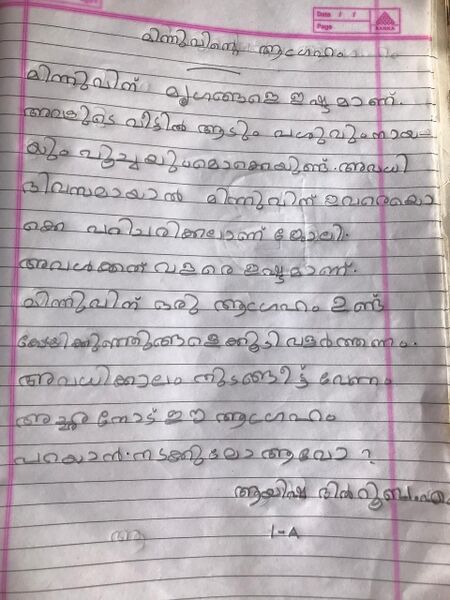 Date / /
Page
KANKA
മിന്നുവിന്റെ ആഗ്രഹം
മിന്നുവിന് മൃഗങ്ങളെ ഇഷ്ടമാണ്.
അവളുടെ വീട്ടിൽ ആടും പശുവും നായ
യും പൂച്ചയുമൊക്കെയുണ്ട്. അവധി
ദിവസമായാൽ മിന്നുവിന് ഇവരെയൊ
ക്കെ പരിചരിക്കലാണ് ജോലി.
അവൾക്കത് വളരെ ഇഷ്ടമാണ്.
മിന്നുവിന് ഒരു ആഗ്രഹം ഉണ്ട്
കോഴിക്കുഞ്ഞുങ്ങളെക്കൂടി വളർത്തണം.
അവധിക്കാലം തുടങ്ങീട്ട് വേണം
അച്ഛനോട് ഈ ആഗ്രഹം
പറയാൻ. നടക്കുമോ ആവോ ?
ആയിഷ
1-A